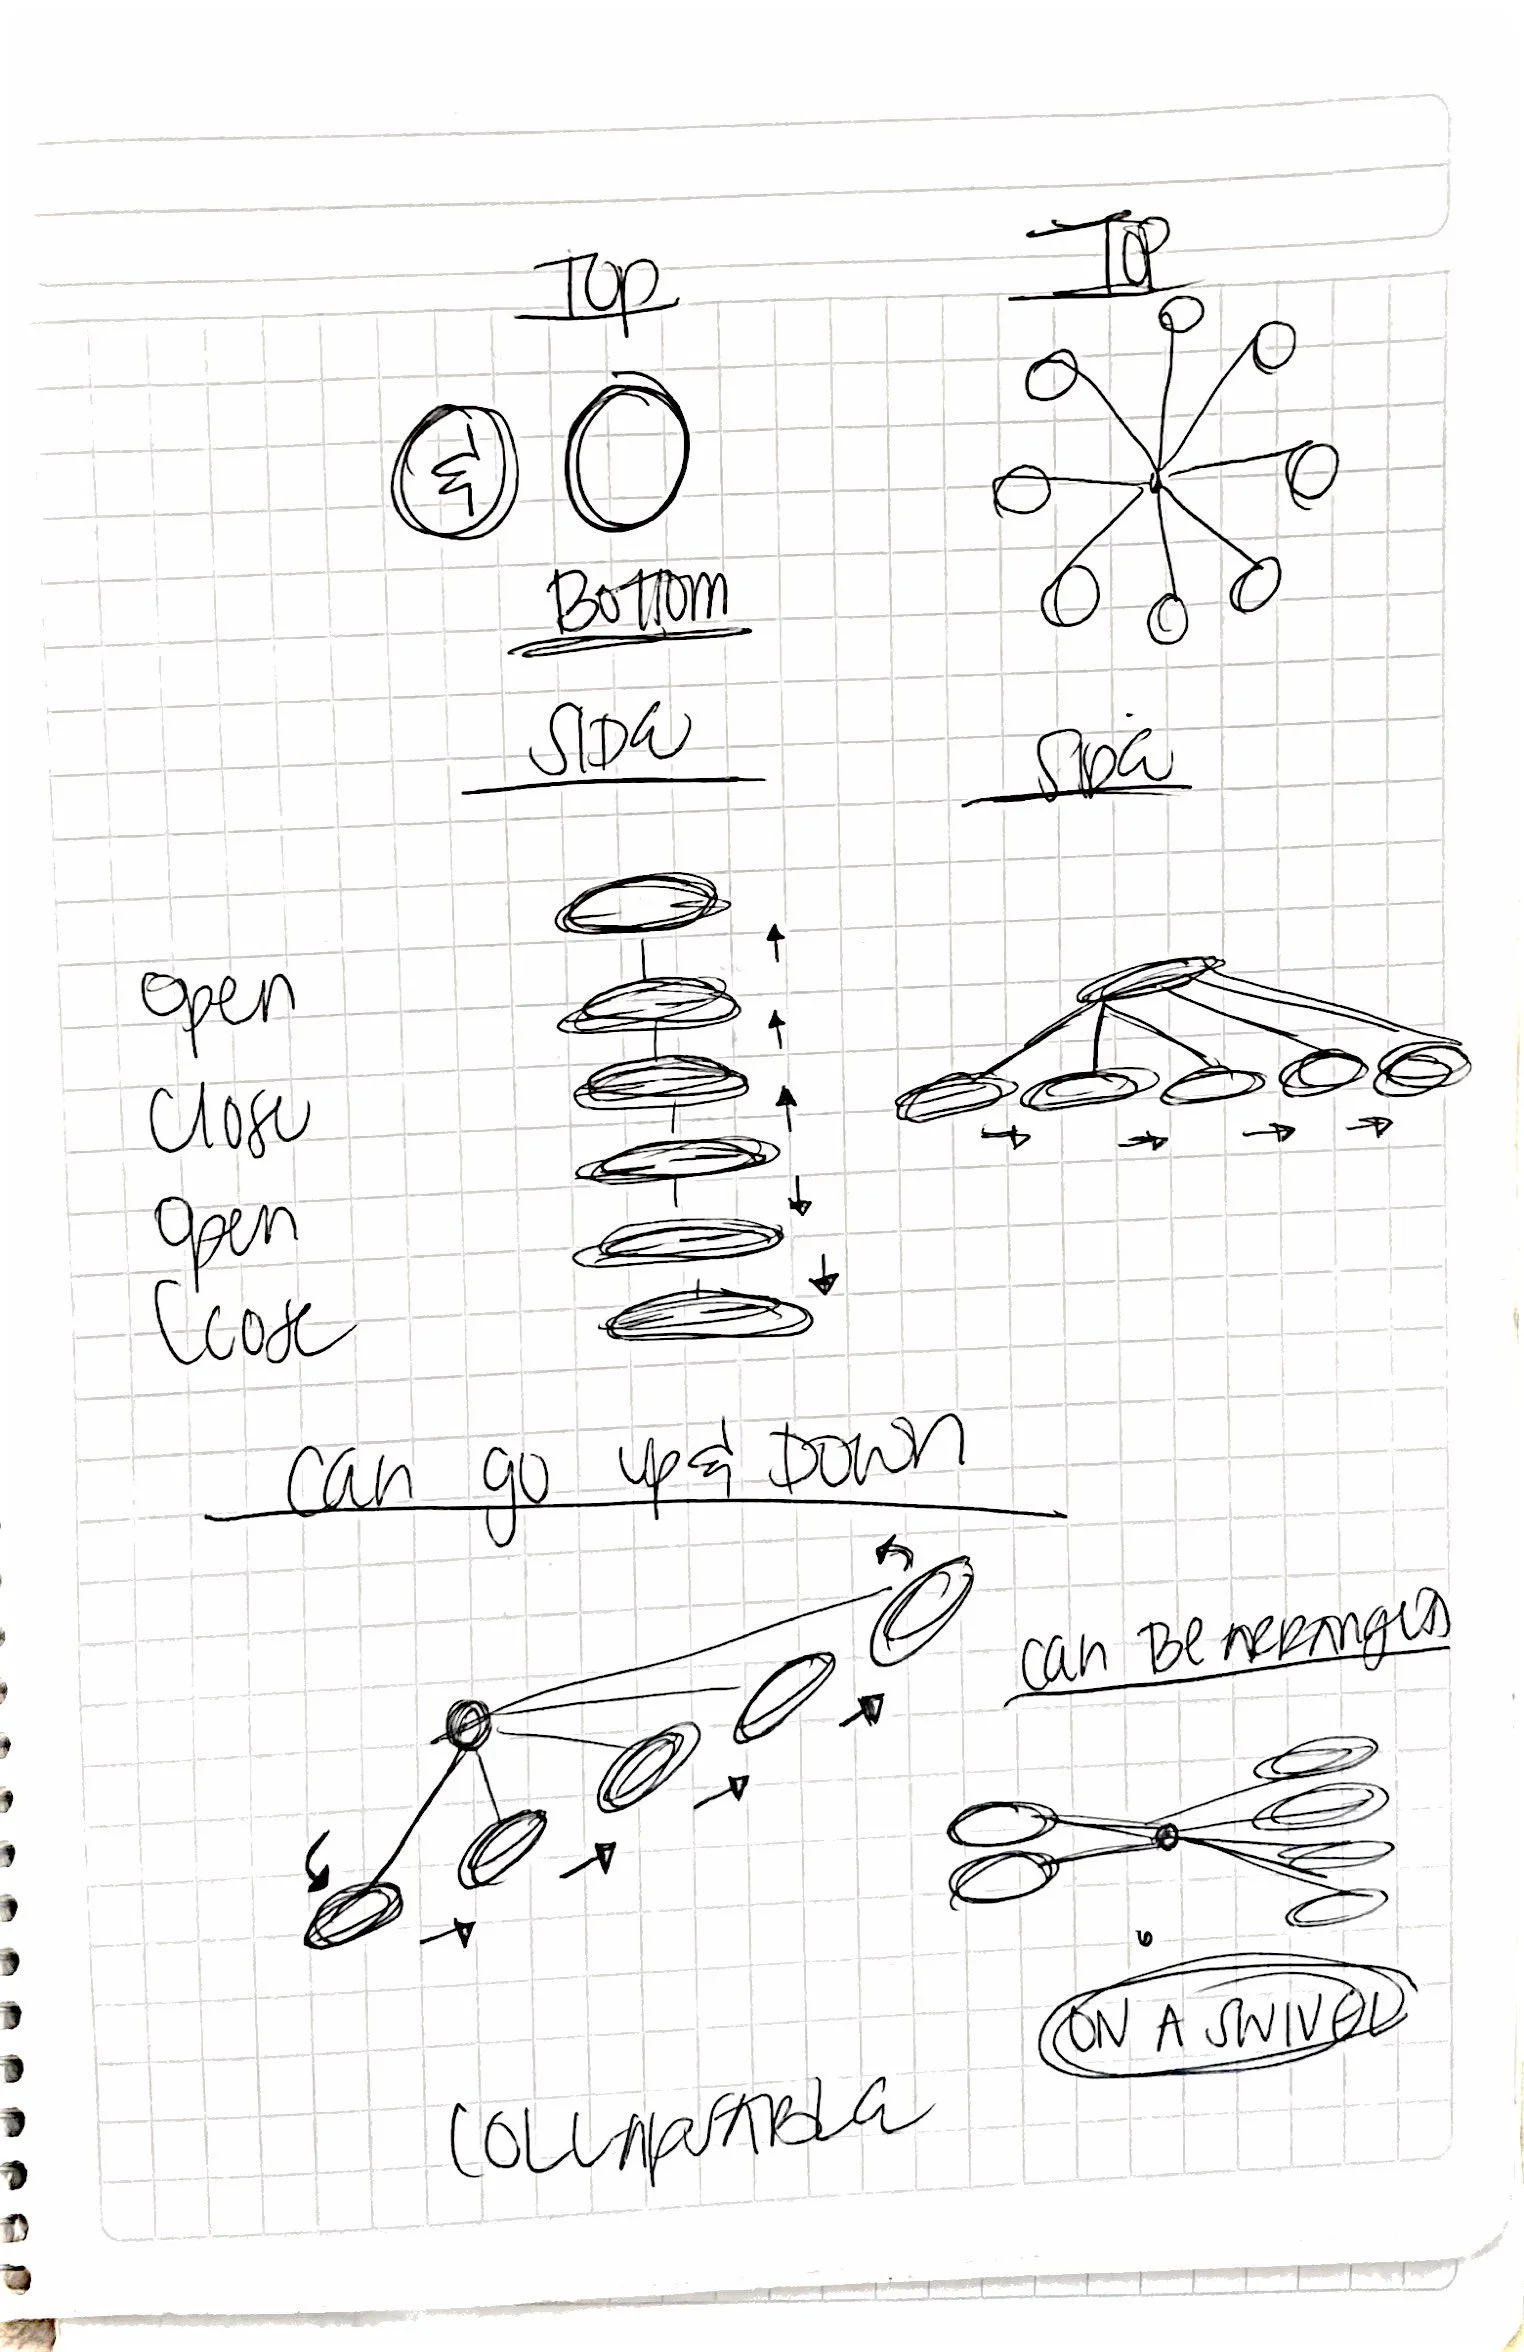 TOP
TOP
&
Bottom
SIDE
SIDE
open
close
open
close
can go up & DOWN
can BE ARRANGED
ON A SWIVEL
COLLAPSABLE